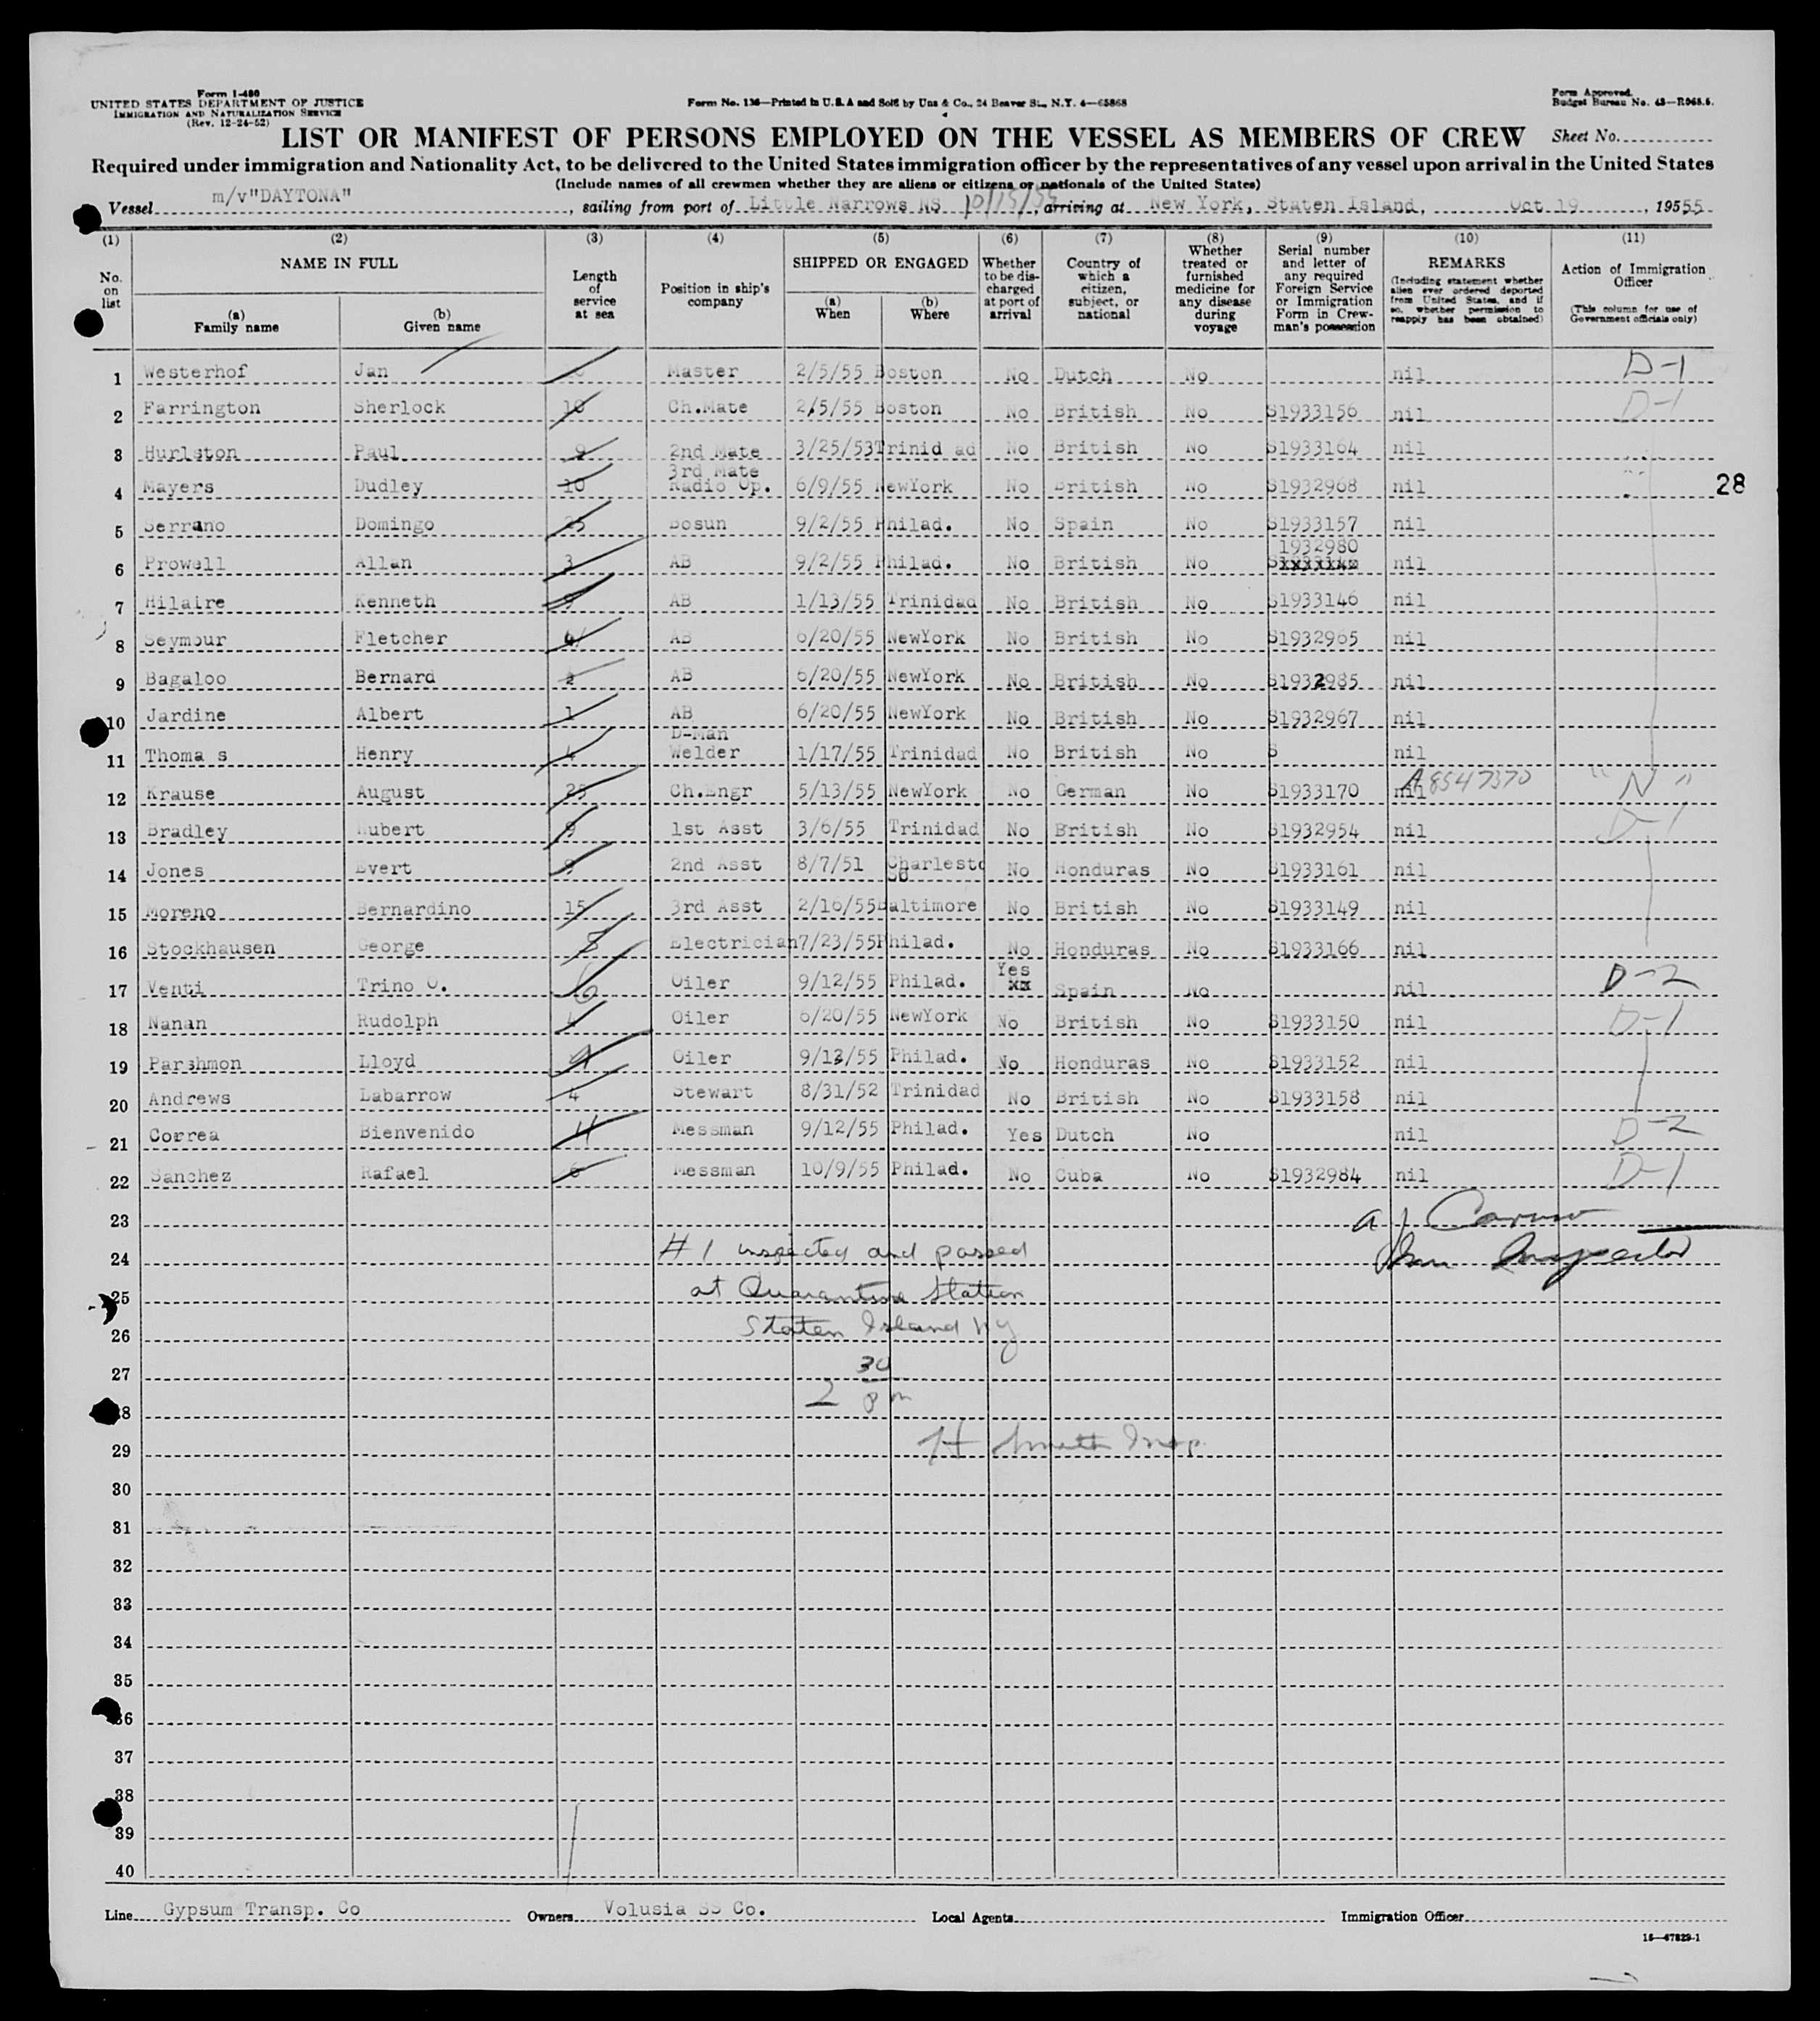 Form I-480
UNITED STATES DEPARTMENT OF JUSTICE
IMMIGRATION AND NATURALIZATION SERVICE
(Rev. 12-24-52)
Form No. 136—Printed in U.S.A and Sold by Unz & Co., 24 Beaver St., N.Y. 4—65868
Form Approved.
Budget Bureau No. 43—R065.5.
LIST OR MANIFEST OF PERSONS EMPLOYED ON THE VESSEL AS MEMBERS OF CREW
Sheet No.
Required under immigration and Nationality Act, to be delivered to the United States immigration officer by the representatives of any vessel upon arrival in the United States
(Include names of all crewmen whether they are aliens or citizens or nationals of the United States)
Vessel m/v"DAYTONA" , sailing from port of Little Narrows NS 10/15/55 , arriving at New York, Staten Island, Oct 19 , 1955 55
(1) (2) (3) (4) (5) (6) (7) (8) (9) (10) (11)
No. on list
NAME IN FULL
(a) Family name
(b) Given name
Length of service at sea
Position in ship's company
SHIPPED OR ENGAGED
(a) When
(b) Where
Whether to be discharged at port of arrival
Country of which a citizen, subject, or national
Whether treated or furnished medicine for any disease during voyage
Serial number and letter of any required Foreign Service or Immigration Form in Crewman's possession
REMARKS
(Including statement whether alien ever ordered deported from United States, and if so, whether permission to reapply has been obtained)
Action of Immigration Officer
(This column for use of Government officials only)
1 Westerhof Jan Master 2/5/55 Boston No Dutch No nil D-1
2 Farrington Sherlock 10 Ch.Mate 2/5/55 Boston No British No S1933156 nil D-1
3 Hurlston Paul 9 2nd Mate 3/25/53 Trinid ad No British No S1933164 nil
4 Mayers Dudley 10 3rd Mate Radio Op. 6/9/55 NewYork No British No S1932968 nil
28
5 Serrano Domingo 25 Bosun 9/2/55 Philad. No Spain No S1933157 nil
6 Prowell Allan 3 AB 9/2/55 Philad. No British No S 1932980 nil
7 Hilaire Kenneth AB 1/13/55 Trinidad No British No S1933146 nil
8 Seymour Fletcher AB 6/20/55 NewYork No British No S1932965 nil
9 Bagaloo Bernard AB 6/20/55 NewYork No British No S1932985 nil
10 Jardine Albert 1 AB 6/20/55 NewYork No British No S1932967 nil
11 Thoma s Henry 4 D-Man Welder 1/17/55 Trinidad No British No S nil
12 Krause August 25 Ch.Engr 5/13/55 NewYork No German No S1933170 nil A8547370 "N"
13 Bradley Hubert 9 1st Asst 3/6/55 Trinidad No British No S1932954 nil D-1
14 Jones Evert 9 2nd Asst 8/7/51 Charlesto No Honduras No S1933161 nil
15 Moreno Bernardino 15 3rd Asst 2/16/55 Baltimore No British No S1933149 nil
16 Stockhausen George 8 Electrician 7/23/55 Philad. No Honduras No S1933166 nil
17 Venti Trino O. 6 Oiler 9/12/55 Philad. Yes xx Spain No nil D-2
18 Nanan Rudolph 4 Oiler 6/20/55 NewYork No British No S1933150 nil D-1
19 Parshmon Lloyd Oiler 9/13/55 Philad. No Honduras No S1933152 nil
20 Andrews Labarrow 4 Stewart 8/31/52 Trinidad No British No S1933158 nil
21 Correa Bienvenido 4 Messman 9/12/55 Philad. Yes Dutch No nil D-2
22 Sanchez Rafael 6 Messman 10/9/55 Philad. No Cuba No S1932984 nil D-1
23 a J Caruso
24 #1 inspected and passed Imm Inspector
25 at Quarantine Station
26 Staten Island NY
27 30
28 2 pm
29 H Smith Insp.
30
31
32
33
34
35
36
37
38
39
40
Line Gypsum Transp. Co Owners Volusia SS Co. Local Agents Immigration Officer
16—67829-1